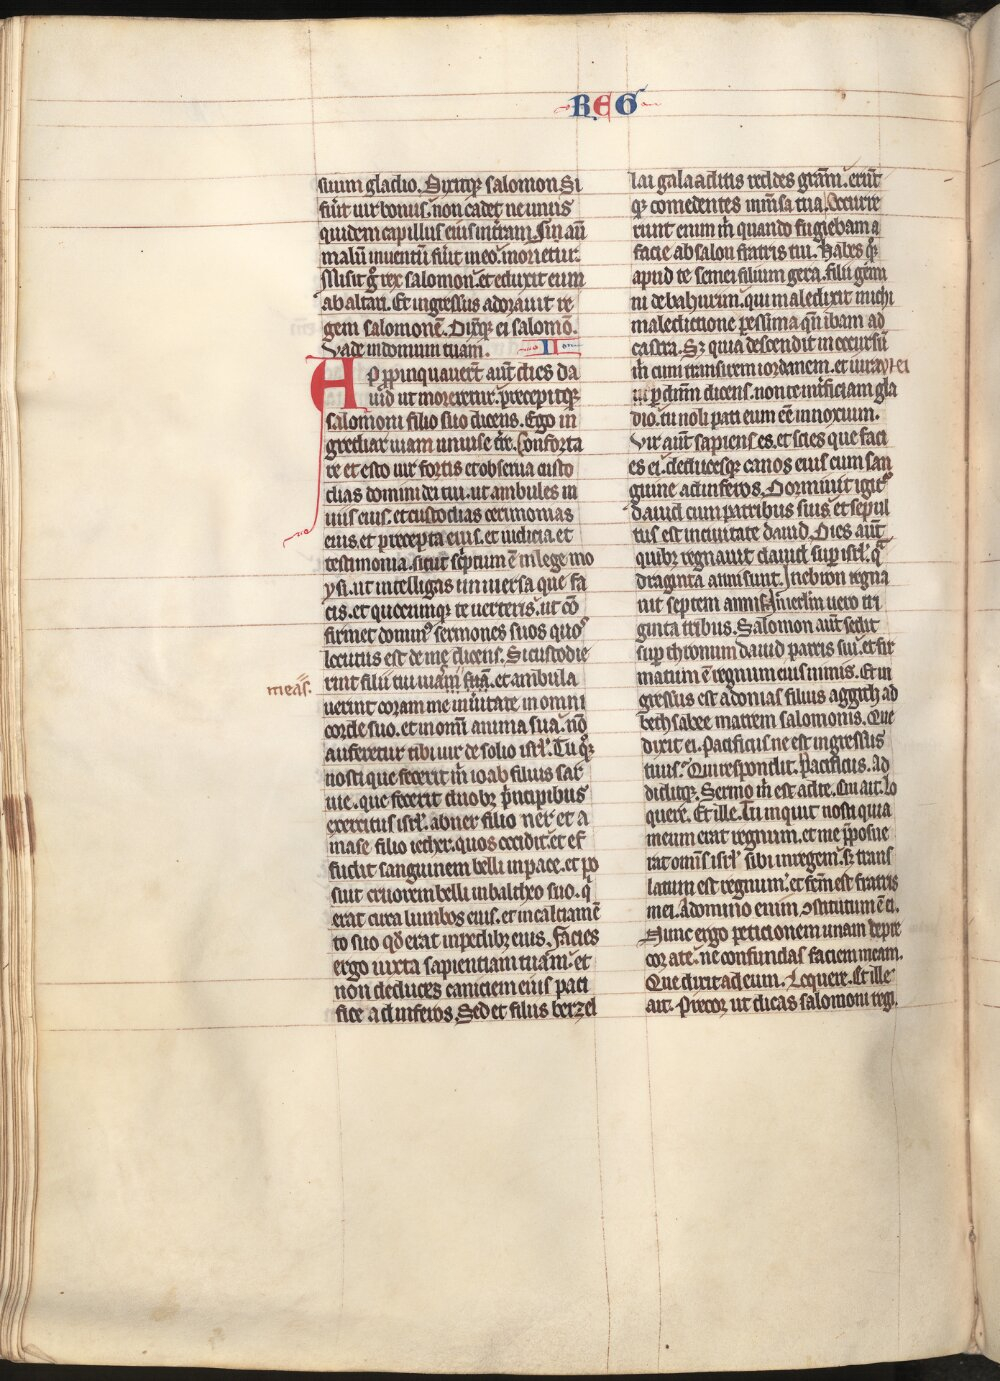 REG
suum gladio. Dixitqꝫ salomon Si
fuīt uir bonus. non cadet ne unus
quidem capillus eius in t̄ram. Sin aū
malū inuentū fūit in eo. morietur.
Misit ḡ rex salomon. et eduxit eum
ab altari. Et ingressus adorauit re
gem salomonē. Dix̄qꝫ ei salomō.
Vade in domum tuam. II
Appinquauert̄ aut̄ dies da
uid ut moreretur. precepitqꝫ
salomoni filio suo dicens. Ego in
gredior uiam uniuīse t̄re. Conforta
re et esto uir fortis et obserua custo
dias domini dei tui. ut ambules in
uiis eius. et custodias cerimonias
eius. et precepta eius. et iudicia et
testimonia. sicut sc̄ptum ē in lege mo
ysi. ut intelligas uniuersa que fa
cis. et quocumqꝫ te uerteris. ut cō
firmet dominꝰ sermones suos quoˢ
locutus est de me dicens. Si custodie
rint filii tui uiam suā. et ambula
meas.
uerint coram me in ūitate in omni
corde suo. et in omi anima sua. nō
auferetur tibi uir de solio isrl̄. Tu qꝫ
nosti que fecerit m̄ ioab filius sar
uie. que fecerit duobꝫ p̄ncipibus
exercitus isrl̄. abner filio ner et a
mase filio iether. quos occidit. et ef
fudit sanguinem belli in pace. et po
suit cruorem belli in baltheo suo. q̄
erat circa lumbos eius. et in calciamē
to suo qd̄ erat in pedibꝫ eius. Facies
ergo iuxta sapientiam tuam. et
non deduces caniciem eius paci
fice ad inferos. Sed et filiis berzel
lai galaaditis reddes grām. erūt
qꝫ comedentes in mīsa tua. Occurre
runt enim m̄ quando fugiebam a
facie absalon fratris tui. Habes qꝫ
apud te semei filium gera. filii gemi
ni de bahurim. qui maledixit michi
maledictione pessima qn̄ ibam ad
castra. Sꝫ quia descendit in occursū
m̄ cum transirem iordanem. et iuraui ei
p dn̄m dicens. non te īt̄ficiam gla
dio. tu noli pati eum eē innoxium.
Vir aut̄ sapiens es. et scies que faci
es ei. deducesqꝫ canos eius cum san
guine ad inferos. Dormiuit igitˢ
dauid cum patribus suis et sepul
tus est in ciuitate dauid. Dies aut̄
quibꝫ regnauit dauid sup isrl̄. q̄
draginta anni sunt. In ebron regna
uit septem annis. In ierlm̄ uero tri
ginta tribus. Salomon aut̄ sedit
sup thronum dauid patris sui. et fir
matum ē regnum eius nimis. Et in
gressus est adonias filius aggith ad
bethsabee matrem salomonis. Que
dixit ei. Pacificus ne est ingressus
tuus. Qui respondit. Pacificus. Ad
diditqꝫ. Sermo m̄ est ad te. Cui ait. Lo
quere. Et ille. Tu inquit nosti quia
meum erat regnum. et me p̄posue
rat omīs isrl̄ sibi in regem. sꝫ trans
latum est regnum. et fc̄m est fratris
mei. A domino enim ↄstitutum ē ei.
Nunc ergo peticionem unam depre
cor a te. ne confundas faciem meam.
Que dixit ad eum. Loquere. Et ille
ait. Precor ut dicas salomoni regi.